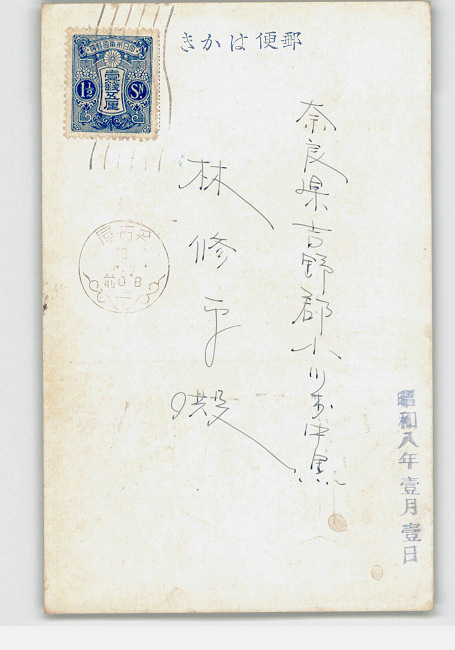 郵便はかき
大日本帝國郵便
壹銭五厘
1½ Sn
奈良県吉野郡小川村中黒
林修平殿
名古屋
8
前0-8
昭和八年壹月壹日